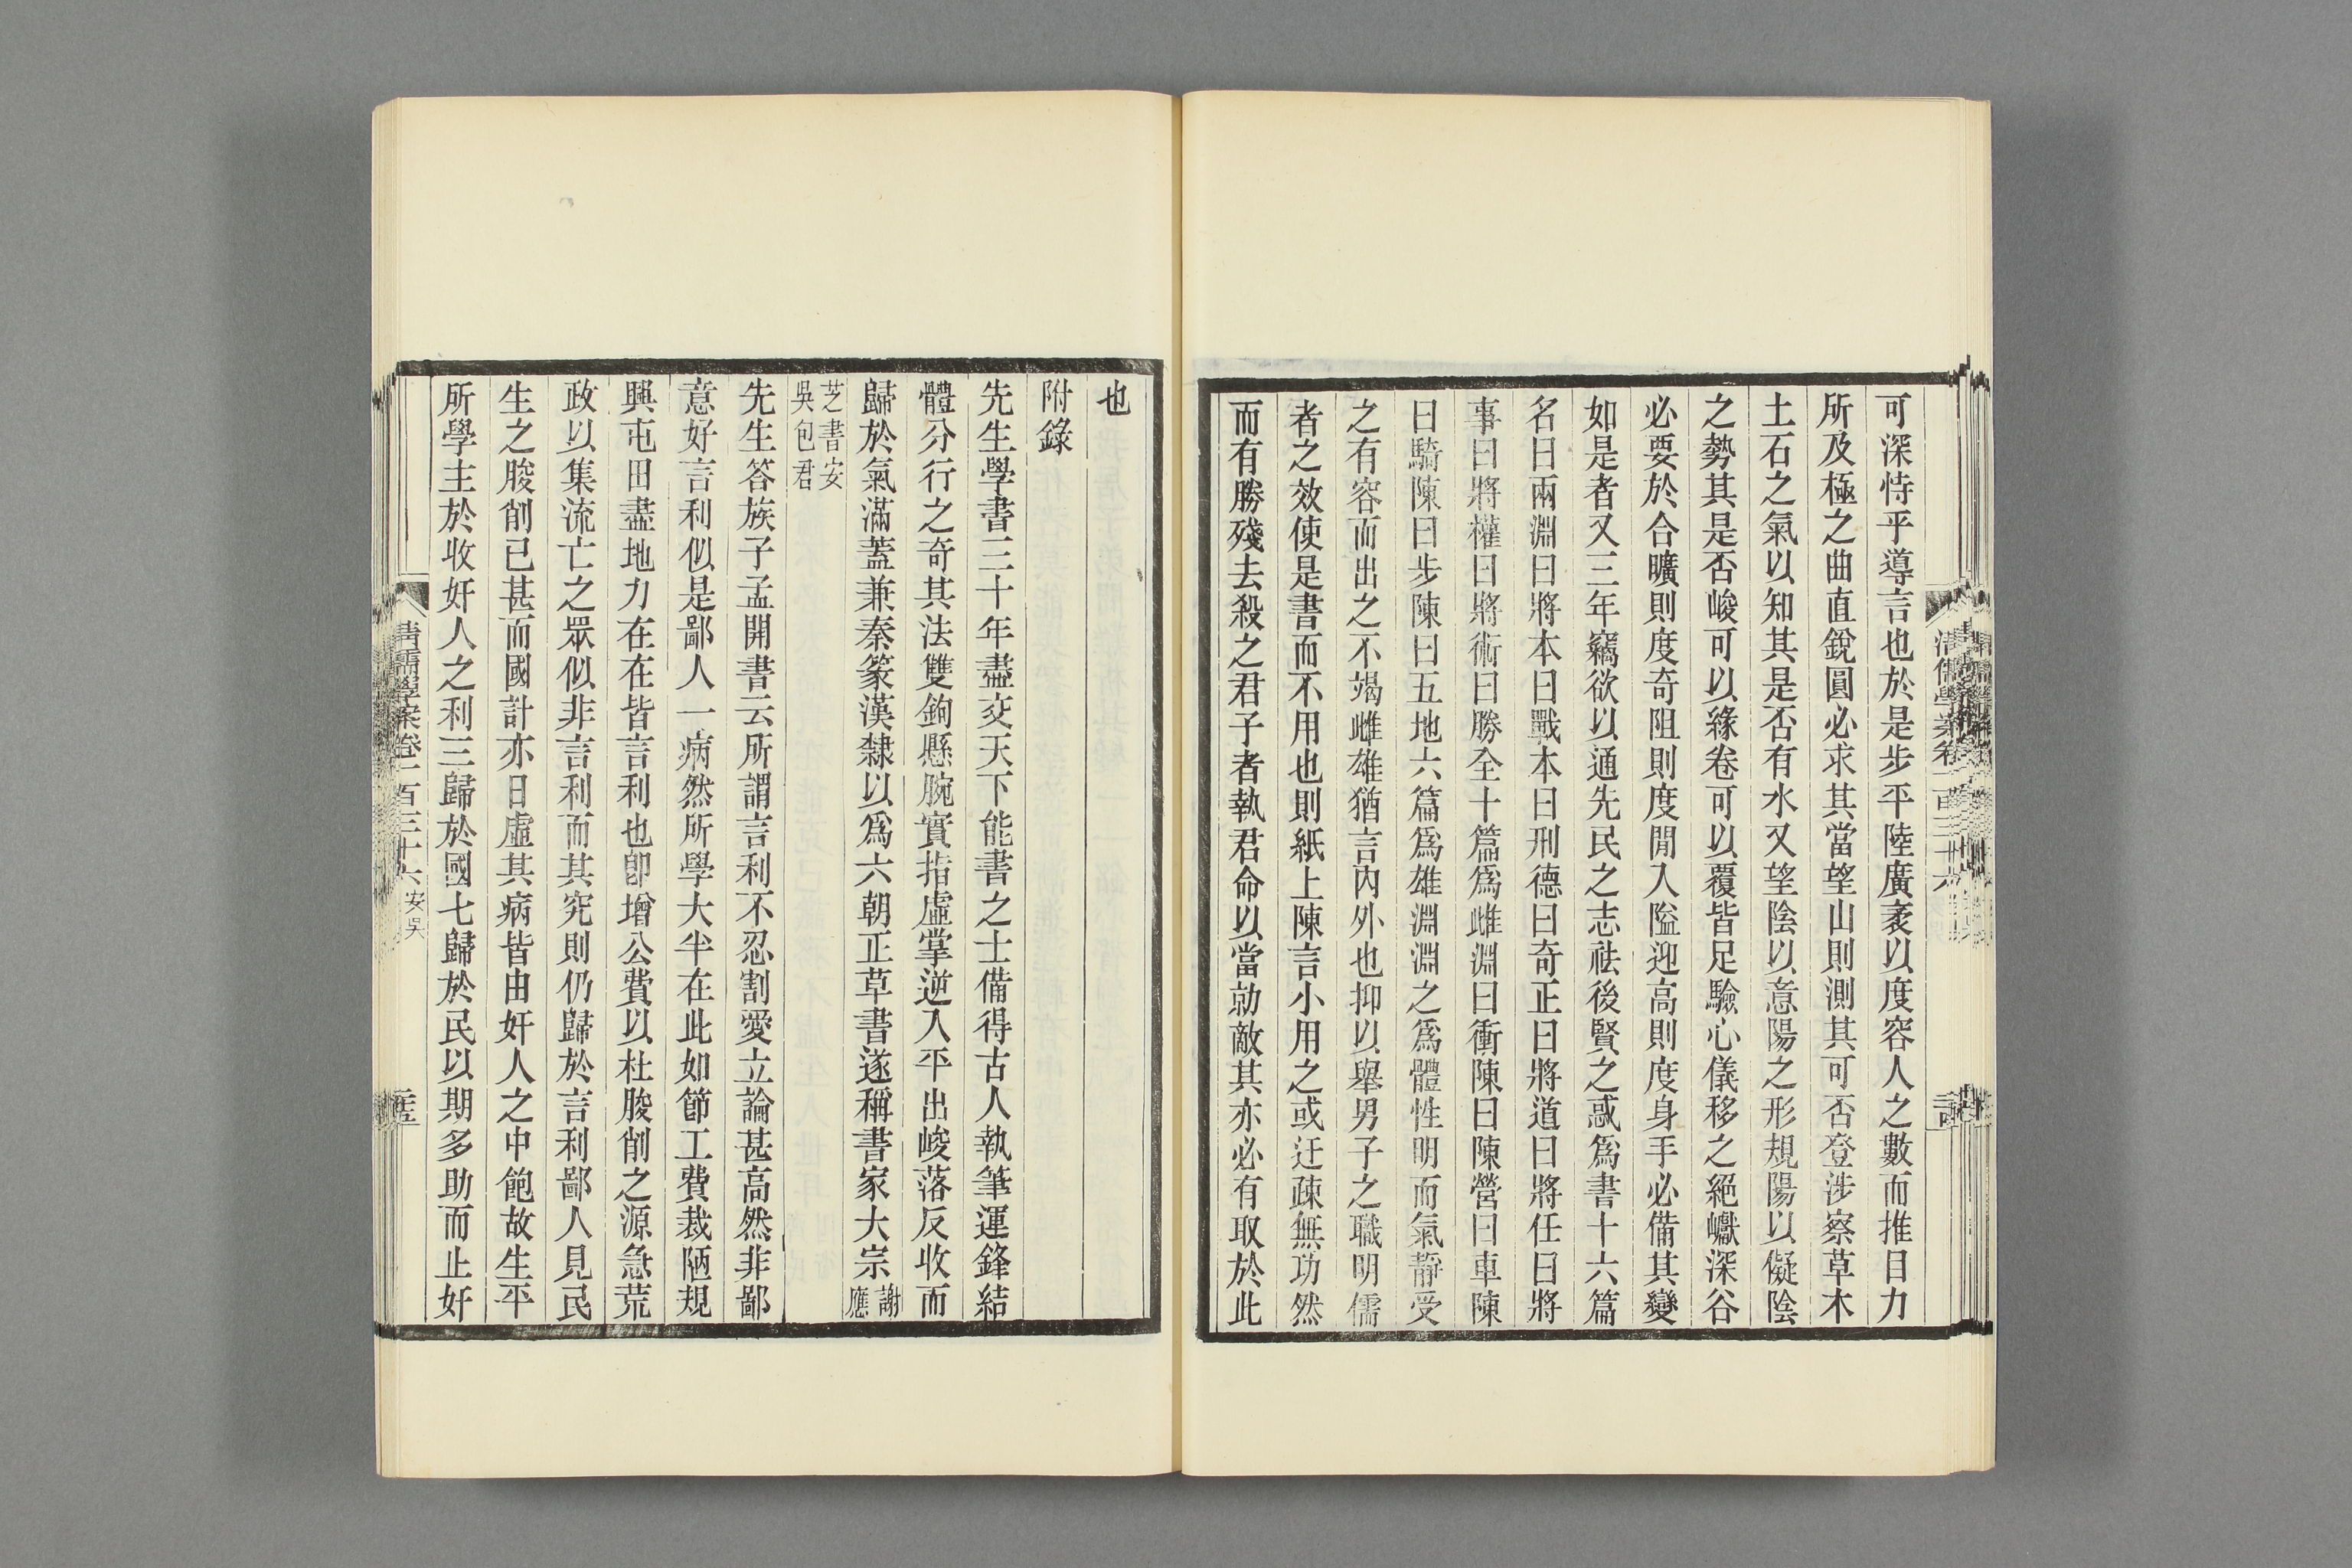 可深恃乎導言也於是步平陸廣袤以度容人之數而推目力
所及極之曲直銳圓必求其當望山則測其可否登涉察草木
土石之氣以知其是否有水又望陰以意陽之形規陽以儗陰
之勢其是否峻可以緣卷可以覆皆足驗心儀移之絕巘深谷
必要於合曠則度奇阻則度閒入隘迎高則度身手必備其變
如是者又三年竊欲以通先民之志祛後賢之惑爲書十六篇
名曰兩淵曰將本曰戰本曰刑德曰奇正曰將道曰將任曰將
事曰將權曰將術曰勝全十篇爲雌淵曰衝陳曰陳營曰車陳
曰騎陳曰步陳曰五地六篇爲雄淵淵之爲體性明而氣靜受
之有容而出之不竭雌雄猶言內外也抑以舉男子之職明儒
者之效使是書而不用也則紙上陳言小用之或迂疎無功然
而有勝殘去殺之君子者執君命以當勍敵其亦必有取於此
也
附錄
先生學書三十年盡交天下能書之士備得古人執筆運鋒結
體分行之奇其法雙鉤懸腕實指虛掌逆入平出峻落反收而
歸於氣滿蓋兼秦篆漢隸以爲六朝正草書遂稱書家大宗謝應
芝書安吳包君
先生答族子孟開書云所謂言利不忍割愛立論甚高然非鄙
意好言利似是鄙人一病然所學大半在此如節工費裁陋規
興屯田盡地力在在皆言利也卽增公費以杜朘削之源急荒
政以集流亡之眾似非言利而其究則仍歸於言利鄙人見民
生之朘削已甚而國計亦日虛其病皆由奸人之中飽故生平
所學主於收奸人之利三歸於國七歸於民以期多助而止奸
清儒學案卷一百三十六 安吳